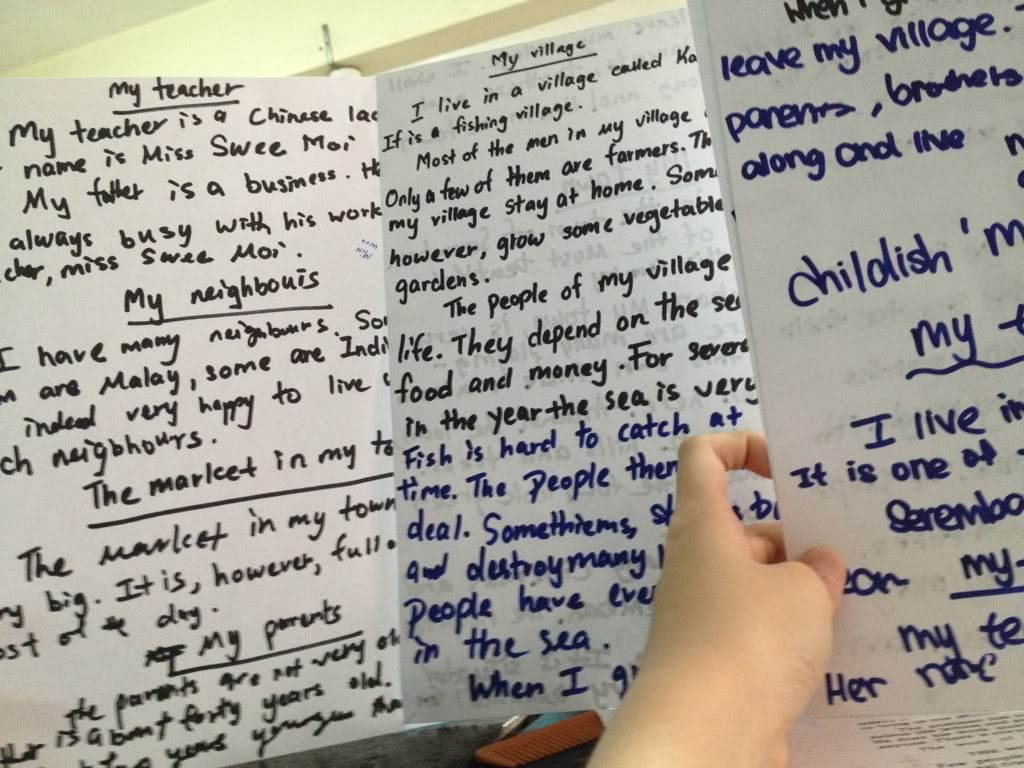 My teacher
My teacher is a Chinese
name is Miss Swee Moi
My father is a business.
always busy with his work
miss Swee Moi.
My neighbouis
I have many neighbours.
are Malay, some are
indeed very happy to live
neigbhours.
The market in my
The market in my town
big. It is, however,
of the day.
My parents
parents are not very
is about forty years old.
years younger
My village
I live in a village called Ka
If is a fishing village.
Most of the men in my village
Only a few of them are farmers. Th
my village stay at home. Som
however, grow some vegetable
gardens.
The people of my village
life. They depend on the se
food and money. For sever
in the year the sea is very
Fish is hard to catch at
time. The People then
deal. Somethiems, st
and destroy many
People have eve
in the sea.
When I g
When I g
leave my village.
parents, brothers
along and live
childish 'm
my t
I live in
It is one of
Seremba
my
my te
Her name